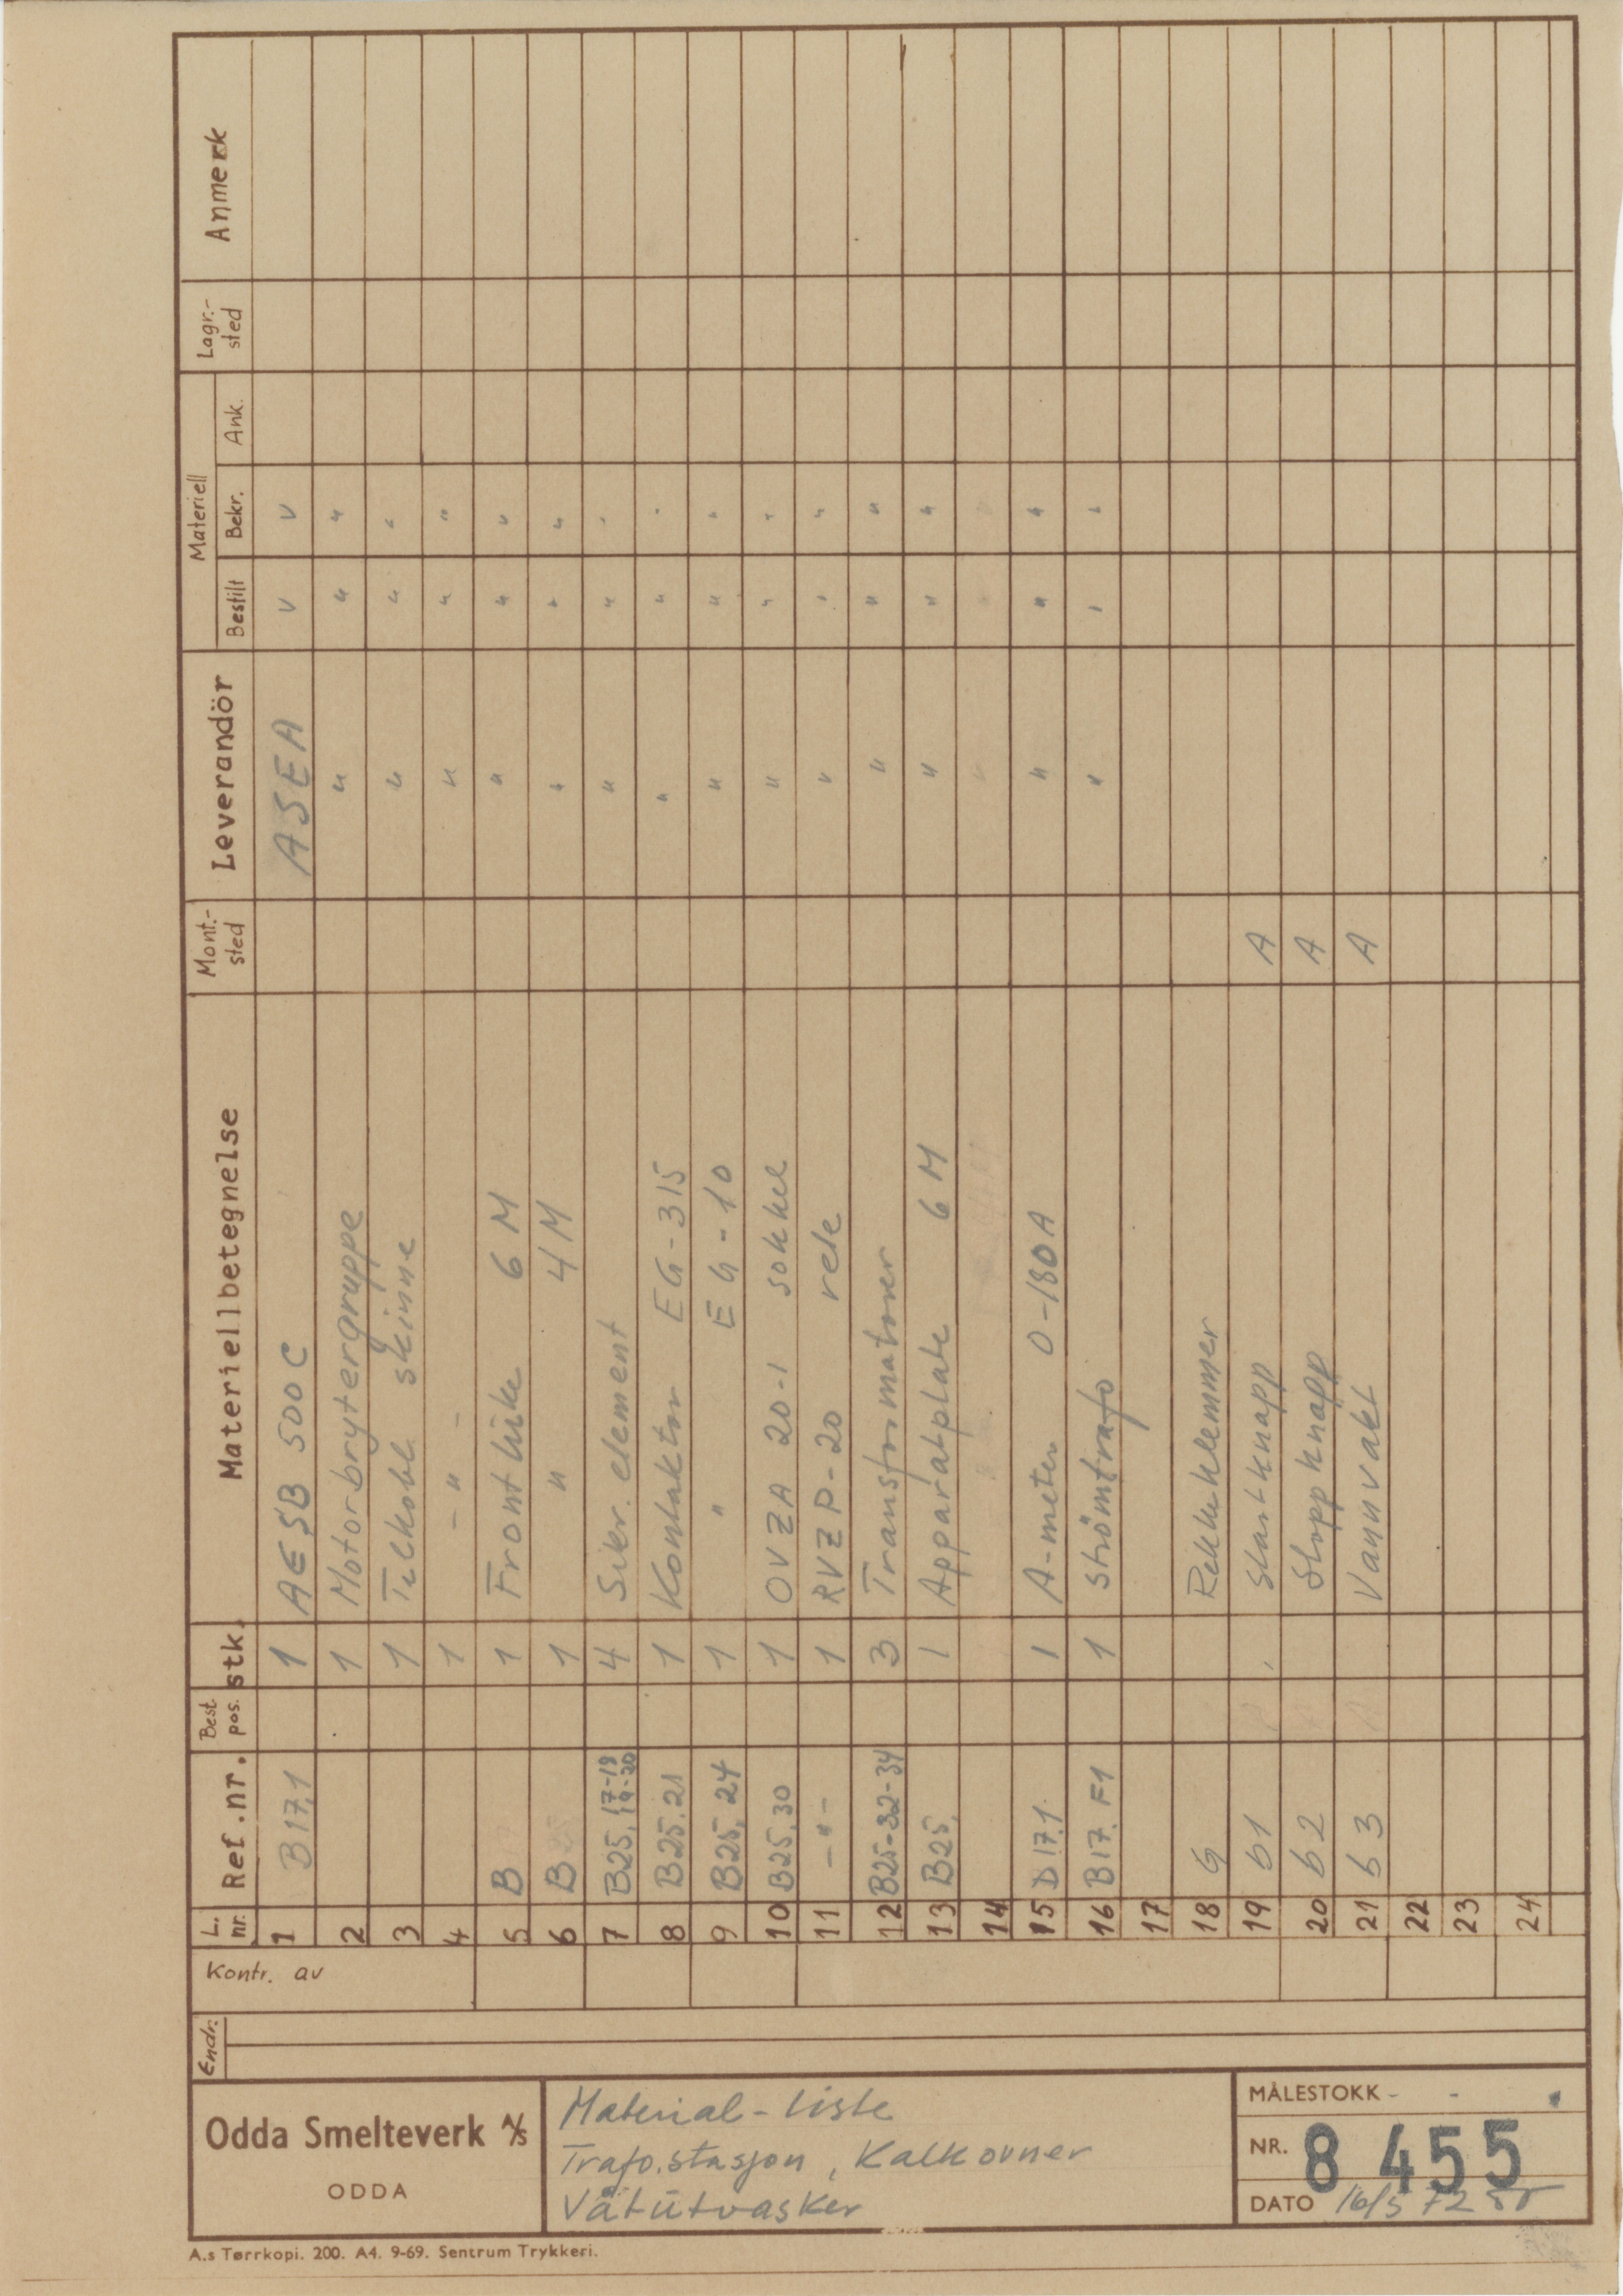 L. nr. Ref.nr. Best pos. stk. Materiellbetegnelse Mont.-sted Leverandör Materiell Bestilt Bekr. Ank. Lagr.-sted Anmerk
1 B17.1 1 AESB 500 C ASEA v v
2 1 Motorbrytergruppe " " "
3 1 Tilkobl. skinne " " "
4 1 - " - " " "
5 B 1 Frontluke 6 M " " "
6 B 1 " 4 M " " "
7 B25. 17-18 19-20 4 Sikr. element " " "
8 B25.21 1 Kontaktor EG-315 " " "
9 B25.24 1 " EG-10 " " "
10 B25.30 1 OVZA 20-1 sokkel " " "
11 -"- 1 RVZP-20 rele " " "
12 B25-32-34 3 Transformatorer " " "
13 B25. 1 Apparatplate 6 M " " "
14
15 D17.1 1 A-meter 0-180A " " "
16 B17.F1 1 Strömtrafo " " "
17
18 G Rekkeklemmer
19 b1 Startknapp A
20 b2 Stoppknapp A
21 b3 Vannvakt A
22
23
24
Kontr. av
Endr.
Odda Smelteverk A/S
ODDA
Material-liste
Trafo.stasjon, Kalkovner
Våtutvasker
MÅLESTOKK - -
NR. 8 455
DATO 16/5 72
A.s Tørrkopi. 200. A4. 9-69. Sentrum Trykkeri.